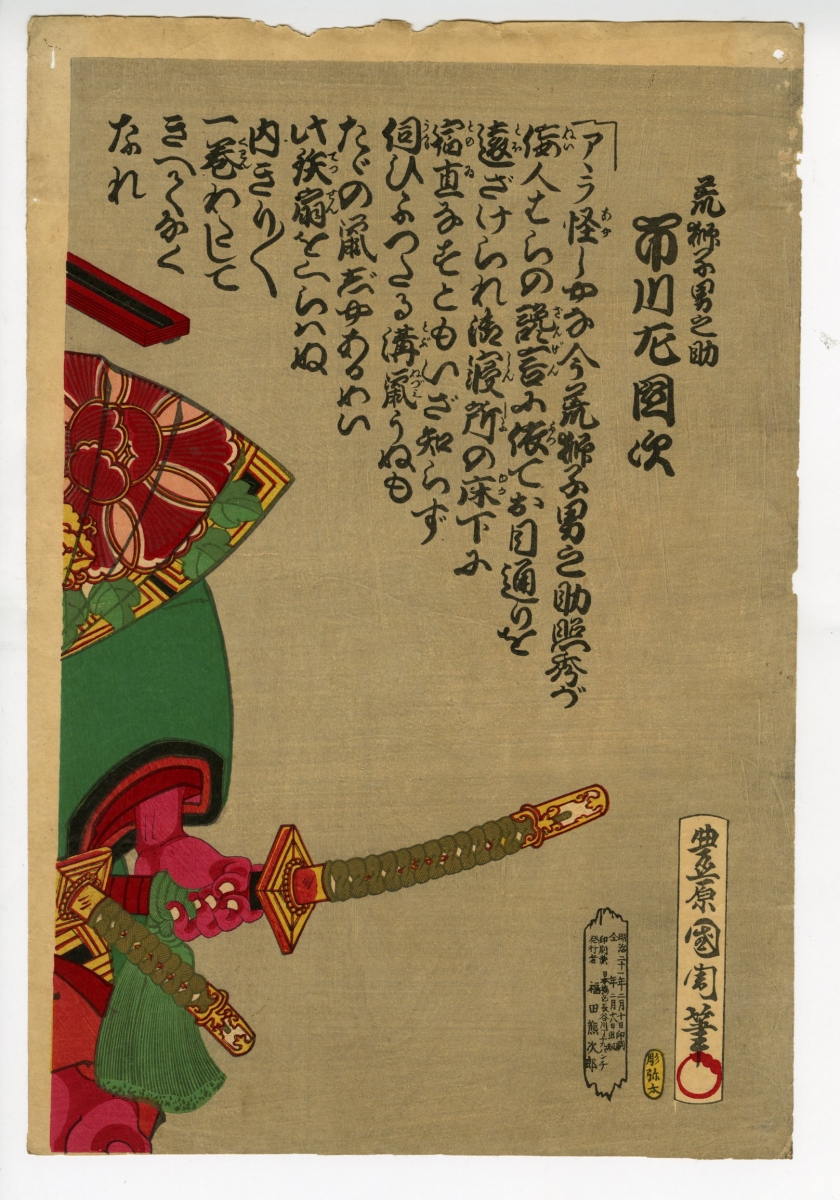 荒獅子男之助
市川左団次
「アラ怪しやな今荒獅子男之助照秀が
佞人ばらの讒言に依てお目通りを
遠ざけられ御寝所の床下に
宿直なすともいざ知らず
伺ひよつたる溝鼠うぬも
たゞの鼠じやあるめい
此鉄扇をくらはぬ
内きり〳〵
一巻わたして
きへてなく
なれ
豊原国周筆
明治二十一年二月十日印刷
仝 年二月十八日出版
印刷兼
発行者
日本橋区長谷川丁十九バンチ
福田熊次郎
彫弥太